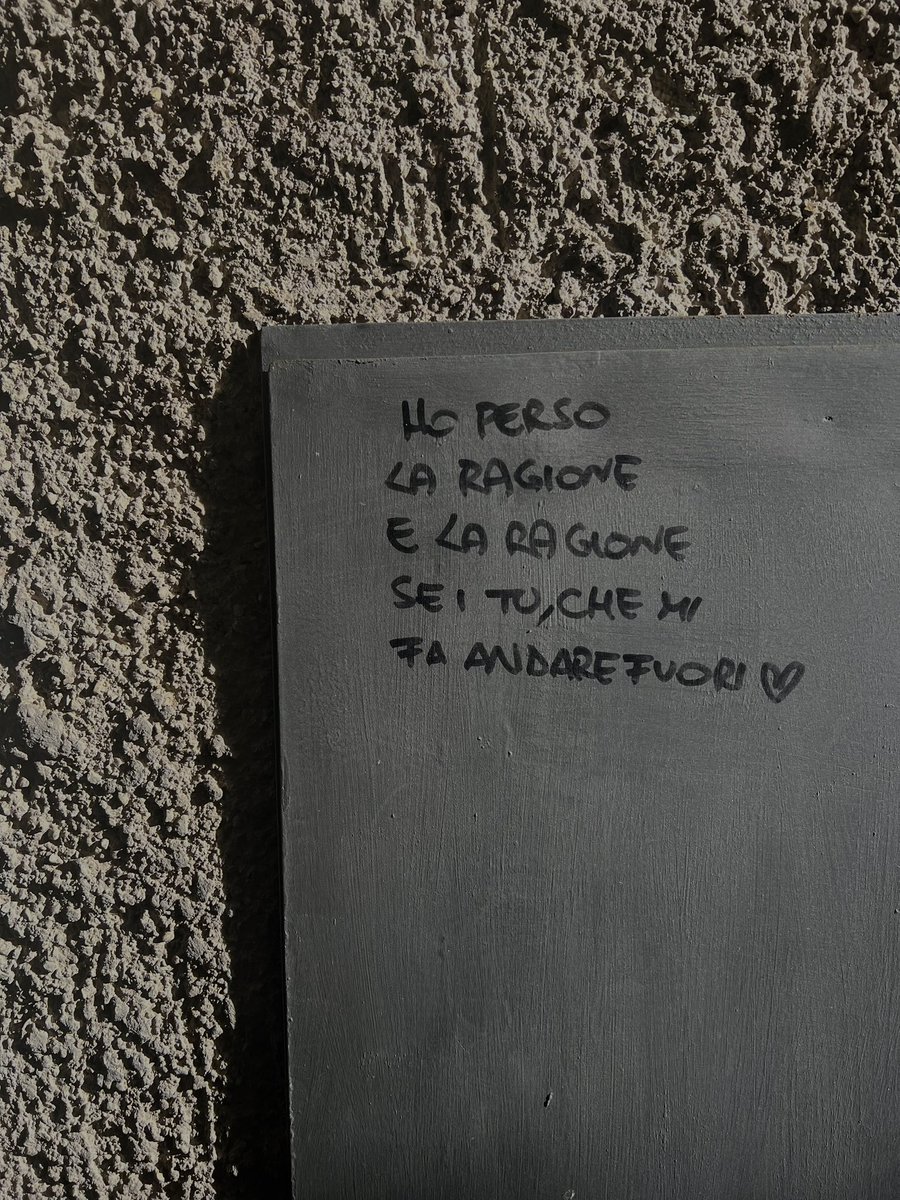 HO PERSO
LA RAGIONE
E LA RAGIONE
SEI TU, CHE MI
FA ANDARE FUORI ♡